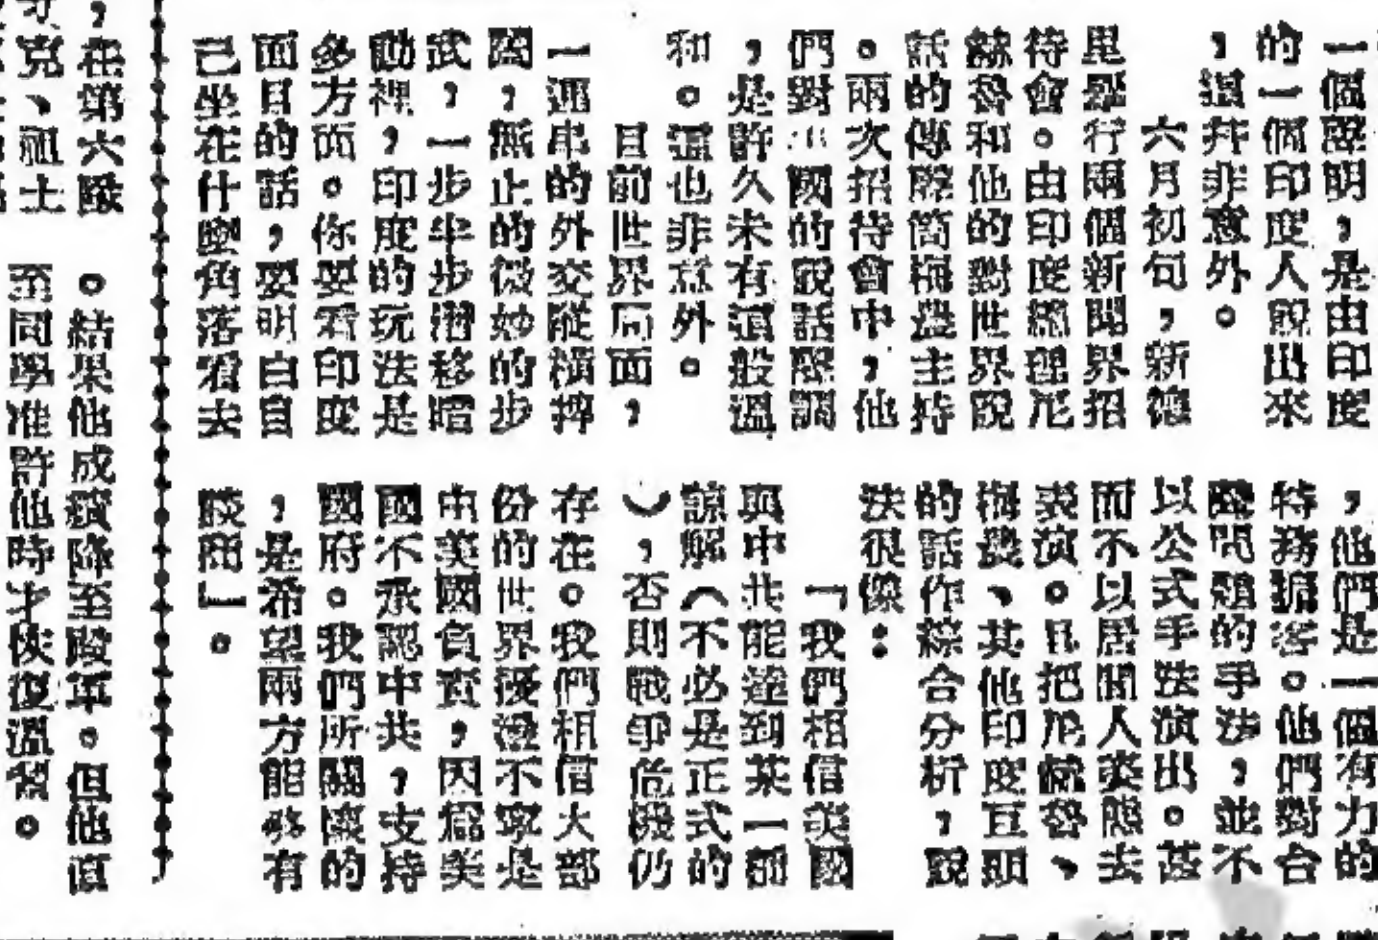 一個聲明，是由印度
的一個印度人說出來
，這幷非意外。
六月初旬，新德
里舉行兩個新聞界招
待會。由印度總理尼
赫魯和他的對世界說
話的傳聲筒梅農主持
。兩次招待會中，他
們對美國的說話腔調
，是許久未有這般溫
和。這也非意外。
目前世界局面，
一連串的外交縱橫捭
闔，無止的微妙的步
武，一步半步潛移暗
動裡，印度的玩法是
多方面。你要看印度
面目的話，要明白自
己坐在什麼角落看去
，他們是一個有力的
特務掮客。他們對台
灣問題的手法，並不
以公式手法演出。甚
而不以居間人姿態去
表演。且把尼赫魯、
梅農、其他印度巨頭
的話作綜合分析，說
法很像：
「我們相信美國
與中共能達到某一種
諒解（不必是正式的
），否則戰爭危機仍
存在。我們相信大部
份的世界擾攘不寧是
由美國負責，因爲美
國不承認中共，支持
國府。我們所關懷的
，是希望兩方能夠有
談商」。
，在第六隊
克、祖士
。結果他成績降至殿軍。但他直
至同學准許他時才恢復溫習。